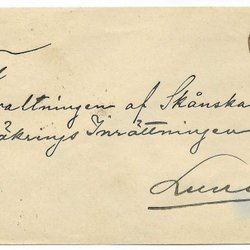 altningen af Skånska
äkrings Inrättningen
Lund